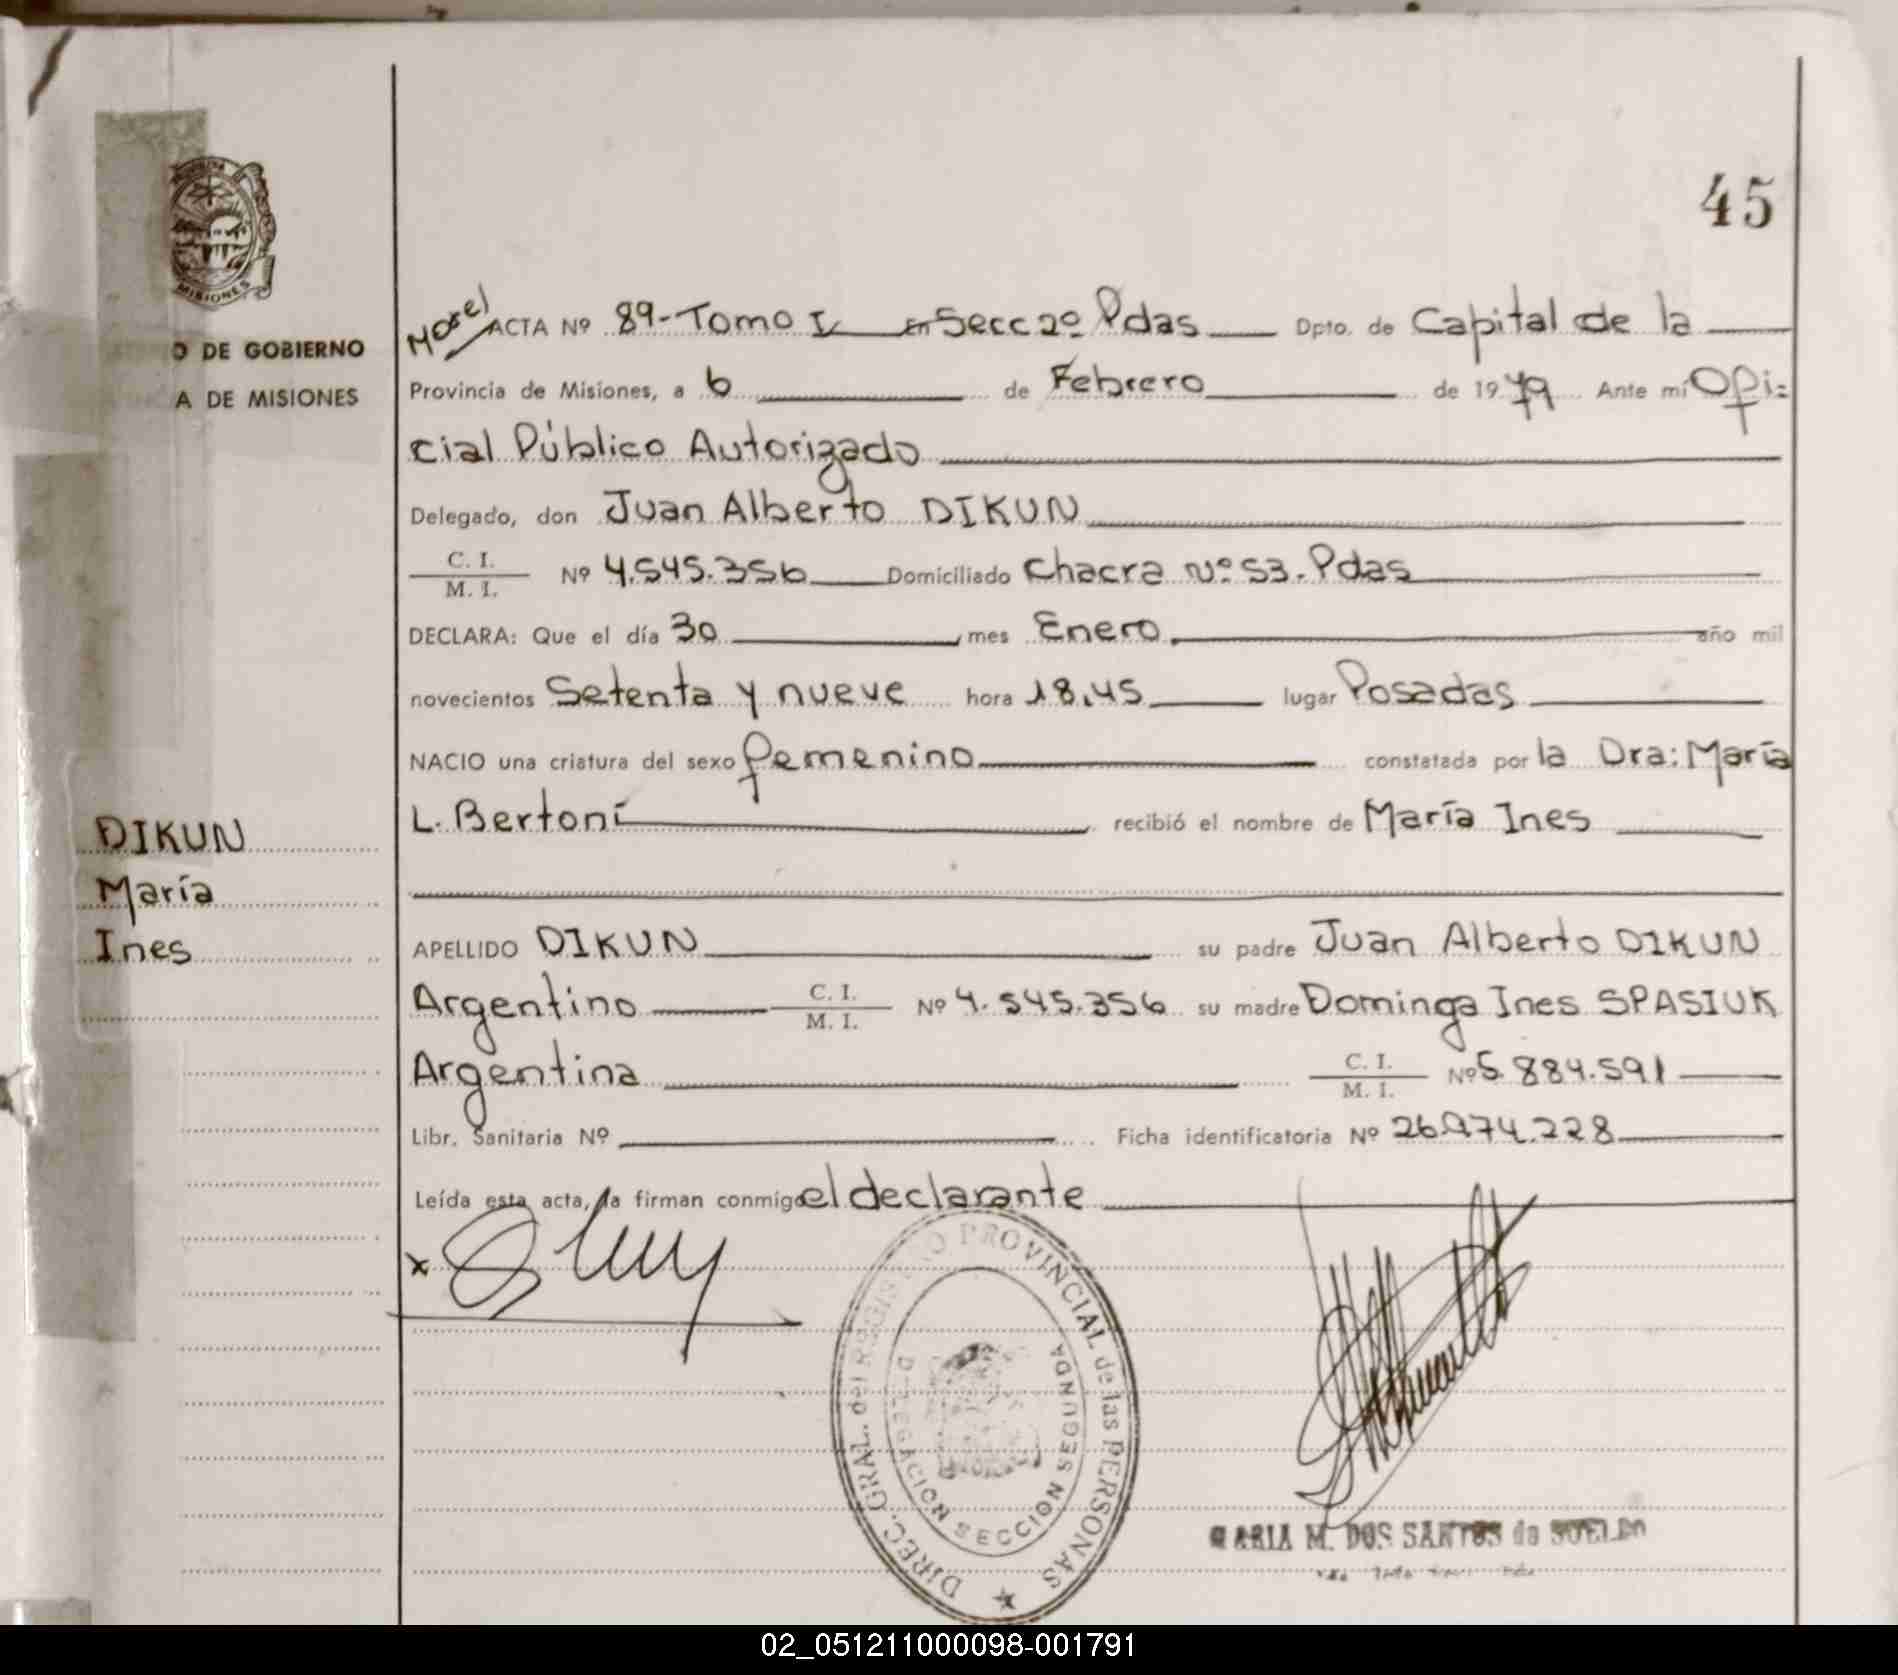 45
MISIONES
O DE GOBIERNO
A DE MISIONES
Morel
ACTA Nº 89-Tomo I En Secc 2º Pdas Dpto. de Capital de la
Provincia de Misiones, a 6 de Febrero de 1979 Ante mi Ofi=
cial Público Autorizado
Delegado, don Juan Alberto DIKUN
C. I.
M. I. Nº 4.545.356 Domiciliado Chacra Nº 53. Pdas
DECLARA: Que el día 30 mes Enero año mil
novecientos Setenta y nueve hora 18,45 lugar Posadas
NACIO una criatura del sexo femenino constatada por la Dra: María
L. Bertoni recibió el nombre de María Ines
DIKUN
María
Ines
APELLIDO DIKUN su padre Juan Alberto DIKUN
Argentino C. I.
M. I. Nº 4.545.356 su madre Dominga Ines SPASIUK
Argentina C. I.
M. I. Nº 5.884.591
Libr. Sanitaria Nº Ficha identificatoria Nº 26.974.228
Leída esta acta, la firman conmigo el declarante
x
DIREC. GRAL. del REGISTRO PROVINCIAL de las PERSONAS
DELEGACION SECCION SEGUNDA
MARIA M. DOS SANTOS de SUELDO
02_051211000098-001791